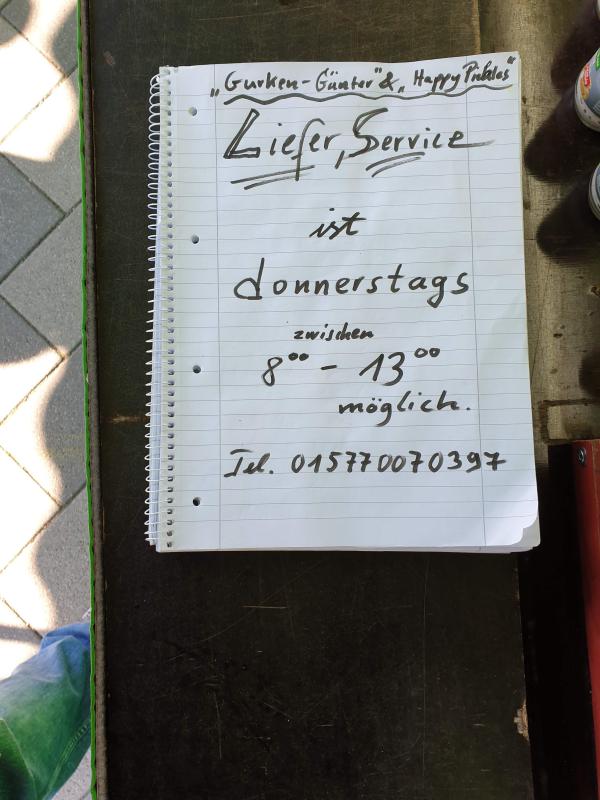 „Gurken-Günter" & „Happy Pickles"
Liefer, Service
ist
donnerstags
zwischen
8⁰⁰ - 13⁰⁰
möglich.
Tel. 015770070397